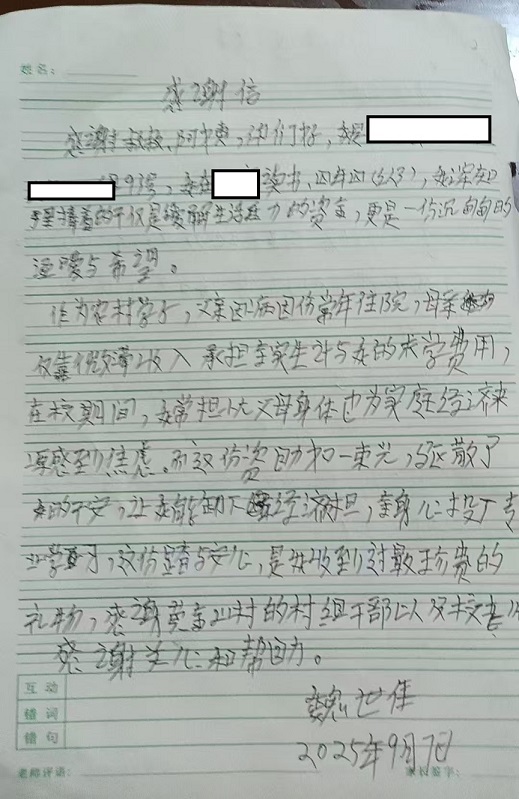 姓名:
感谢信
感谢叔叔、阿姨,你们好,我是
189号,我在 读书,四年四(红),我深知
手里捧着的不仅是缓解生活压力的资金,更是一份沉甸甸的
温暖与希望。
作为农村学子,父亲因病因伤常年住院,母亲
仅靠微薄收入承担全家生计与我的求学费用,
在校期间,我常担忧父母身体也为家庭经济来
源感到焦虑。而这份资助如一束光,驱散了
我的不安,让我能卸下经济重担,全身心投入专
业学习,这份踏实与安心,是我收到过最珍贵的
礼物,感谢 村的村组干部以及校老师
感谢关心和帮助。
魏世佳
2025年9月7日
互动
错词
错句
老师评语:
家长签字: